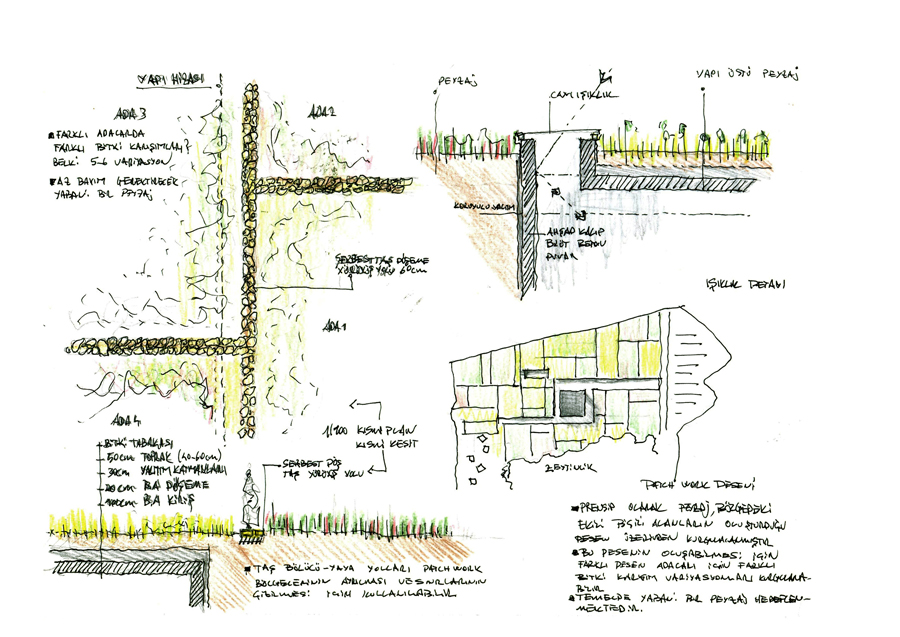 YAPI HİZASI
ADA 3
ADA 2
FARKLI ADALARDA
FARKLI BİTKİ KARIŞIMLARI
BELKİ 5-6 VARİYASYON
AZ BAKIM GEREKTİRECEK
YABANİ BİR PEYZAJ
SERBEST TAŞ DÖŞEME
YÜRÜYÜŞ YOLU 60cm
ADA 1
ADA 4
1/100 KISMİ PLAN
KISMİ KESİT
BİTKİ TABAKASI
50cm TOPRAK (40-60cm)
30cm YALITIM KATMANLARI
20cm B.A DÖŞEME
100cm B.A KİRİŞ
SERBEST DÖŞ
TAŞ YÜRÜYÜŞ YOLU
TAŞ BÖLÜCÜ-YAYA YOLLARI PATCHWORK
BÖLGELERİNİN AYRILMASI VE SINIRLARININ
ÇİZİLMESİ İÇİN KULLANILABİLİR
PEYZAJ
CAM IŞIKLIK
YAPI ÜSTÜ PEYZAJ
KORUYUCU
AHŞAP KALIP
BRÜT BETON
DUVAR
IŞIKLIK DETAYI
ZEYTİNLİK
PATCH WORK DESENİ
PRENSİP OLARAK PEYZAJ, BÖLGEDEKİ
EKİLİ BİÇİLİ ALANLARIN OLUŞTURDUĞU
DESEN ÜZERİNDEN KURGULANMIŞTIR
BU DESENİN OLUŞABİLMESİ İÇİN
FARKLI DESEN ADALARI İÇİN FARKLI
BİTKİ KARIŞIM VARİYASYONLARI KURGULANA-
BİLİR
TEMELDE YABANİ BİR PEYZAJ HEDEFLEN-
MEKTEDİR.